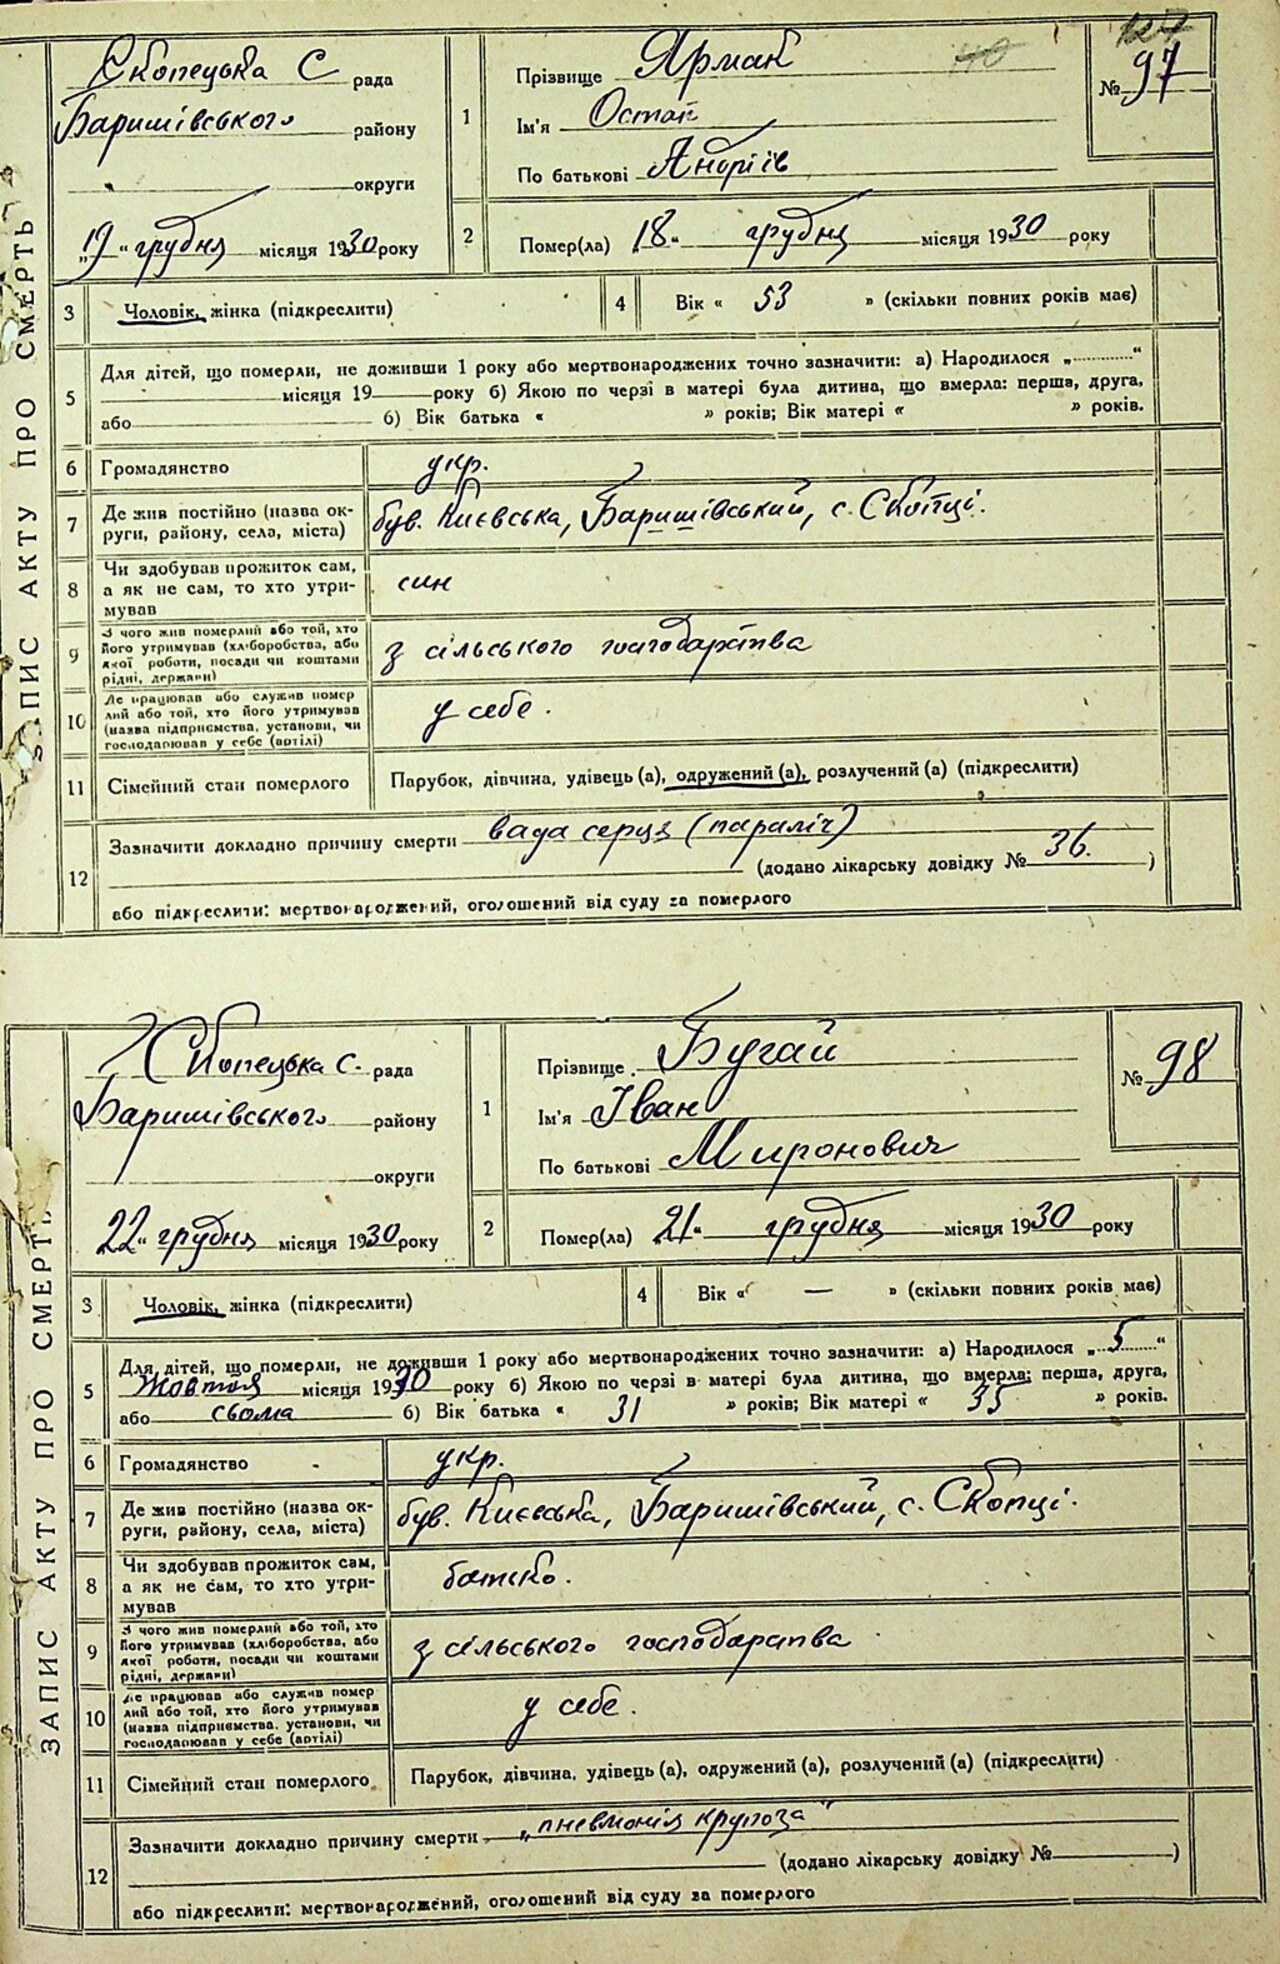 ЗАПИС АКТУ ПРО СМЕРТЬ
Скопецька С рада
Баришівського району
округи
„19“ грудня місяця 1930 року
1
Прізвище Ярмак
Ім'я Остап
По батькові Андріїв
№ 97
2
Помер(ла) 18“ грудня місяця 1930 року
3 Чоловік, жінка (підкреслити)
4 Вік « 53 » (скільки повних років має)
5 Для дітей, що померли, не доживши 1 року або мертвонароджених точно зазначити: а) Народилося „ “
місяця 19 року б) Якою по черзі в матері була дитина, що вмерла: перша, друга,
або б) Вік батька « » років; Вік матері « » років.
6 Громадянство укр.
7 Де жив постійно (назва ок-
руги, району, села, міста) був. Києвська, Баришівський, с. Скопці.
8 Чи здобував прожиток сам,
а як не сам, то хто утри-
мував син
9 З чого жив померлий або той, хто
його утримував (хліборобства, або
якої роботи, посади чи коштами
рідні, держави) з сільського господарства
10 Де працював або служив помер
лий або той, хто його утримував
(назва підприємства, установи, чи
господарював у себе (артілі) у себе.
11 Сімейний стан померлого Парубок, дівчина, удівець (а), одружений (а), розлучений (а) (підкреслити)
12 Зазначити докладно причину смерти вада серця (параліч)
(додано лікарську довідку № 36. )
або підкреслити: мертвонароджений, оголошений від суду за померлого
ЗАПИС АКТУ ПРО СМЕРТЬ
Скопецька С. рада
Баришівського району
округи
22“ грудня місяця 1930 року
1
Прізвище Бугай
Ім'я Іван
По батькові Миронович
№ 98
2
Помер(ла) 21“ грудня місяця 1930 року
3 Чоловік, жінка (підкреслити)
4 Вік « — » (скільки повних років має)
5 Для дітей, що померли, не доживши 1 року або мертвонароджених точно зазначити: а) Народилося „ 5 “
жовтня місяця 1930 року б) Якою по черзі в матері була дитина, що вмерла: перша, друга,
або сьома б) Вік батька « 31 » років; Вік матері « 35 » років.
6 Громадянство укр.
7 Де жив постійно (назва ок-
руги, району, села, міста) був. Києвська, Баришівський, с. Скопці.
8 Чи здобував прожиток сам,
а як не сам, то хто утри-
мував батько.
9 З чого жив померлий або той, хто
його утримував (хліборобства, або
якої роботи, посади чи коштами
рідні, держави) з сільського господарства
10 Де працював або служив помер
лий або той, хто його утримував
(назва підприємства, установи, чи
господарював у себе (артілі) у себе.
11 Сімейний стан померлого Парубок, дівчина, удівець (а), одружений (а), розлучений (а) (підкреслити)
12 Зазначити докладно причину смерти „пневмонія крупоза“
(додано лікарську довідку № )
або підкреслити: мертвонароджений, оголошений від суду за померлого